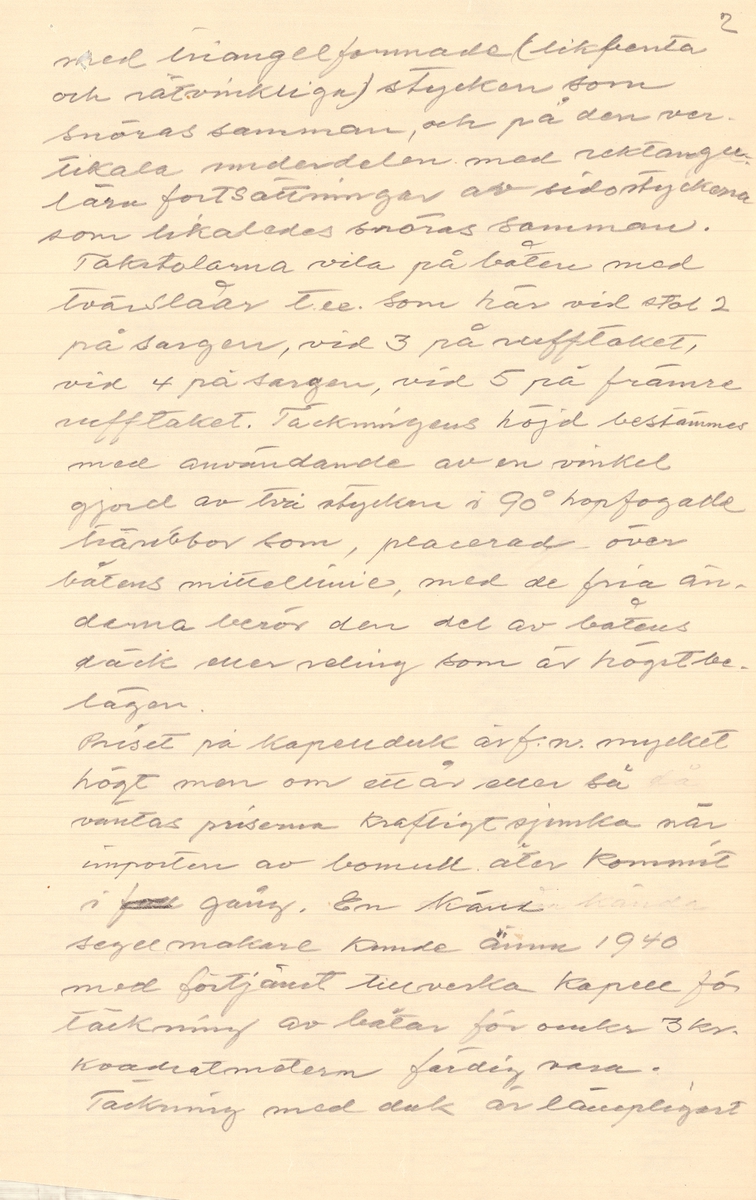 2
med triangelformade (likbenta
och rätvinkliga) stycken som
snöras samman, och på den ver-
tikala underdelen med rektangu-
lära fortsättningar av sidostyckena
som likaledes snöras samman.
Takstolarna vila på båten med
tvärslåar t.ex. som här vid stol 2
på sargen, vid 3 på rufftaket,
vid 4 på sargen, vid 5 på främre
rufftaket. Täckningens höjd bestämmes
med användande av en vinkel
gjord av två stycken i 90° hopfogade
träribbor som, placerad över
båtens mittellinie, med de fria än-
darna berör den del av båtens
däck eller reling som är högst be-
lägen.
Priset på kapellduk är f.n. mycket
högt men om ett år eller så då
väntas priserna kraftigt sjunka när
importen av bomull åter kommit
i gång. En känd
segelmakare kunde ännu 1940
med förtjänst tillverka kapell för
täckning av båtar för omkr 3 kr.
kvadratmetern färdig vara.
Täckning med duk är lämpligast